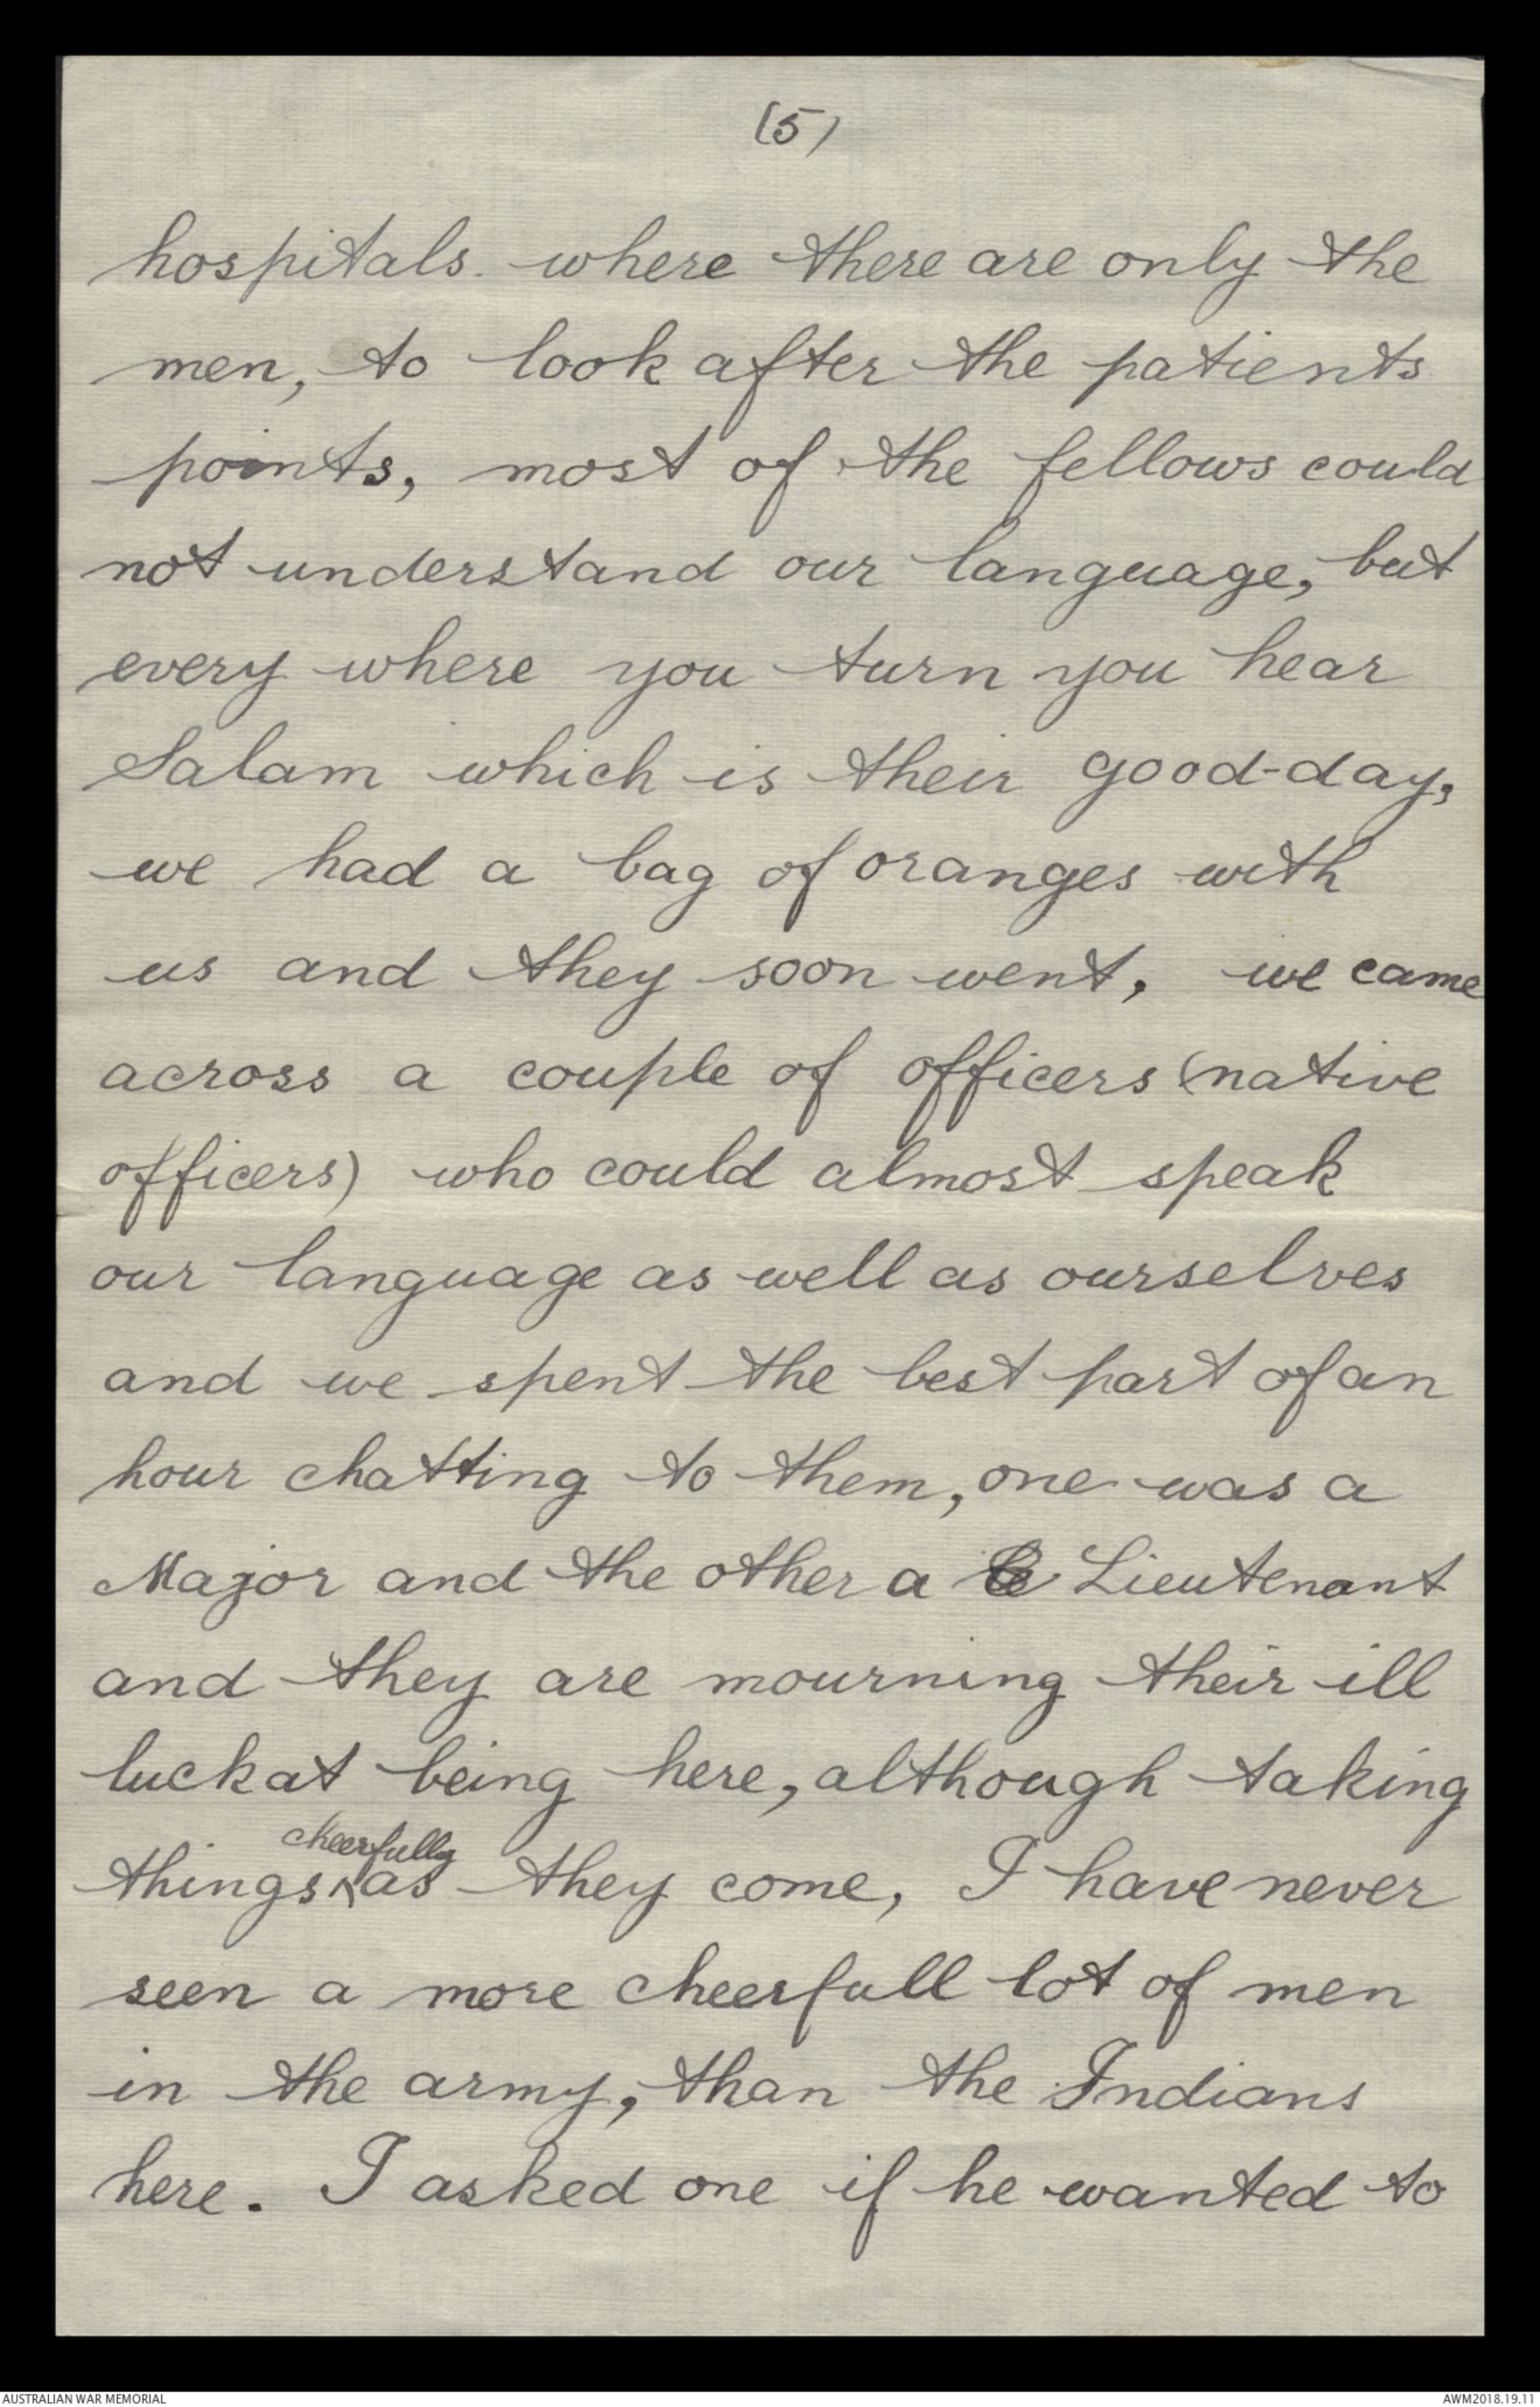 (5)
hospitals. where there are only the
men, to look after the patients
points, most of the fellows could
not understand our language, but
every where you turn you hear
Salam which is their good-day,
we had a bag of oranges with
us and they soon went, we came
across a couple of officers (native
officers) who could almost speak
our language as well as ourselves
and we spent the best part of an
hour chatting to them, one was a
Major and the other a Lieutenant
and they are mourning their ill
luck at being here, although taking
cheerfully
things ^ as they come, I have never
seen a more cheerfull lot of men
in the army, than the Indians
here. I asked one if he wanted to
AUSTRALIAN WAR MEMORIAL
AWM2018.19.11